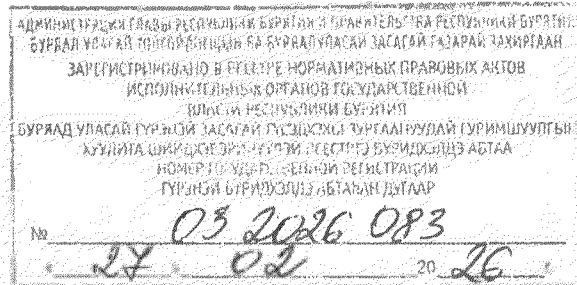 АДМИНИСТРАЦИЯ ГЛАВЫ РЕСПУБЛИКИ БУРЯТИЯ И ПРАВИТЕЛЬСТВА РЕСПУБЛИКИ БУРЯТИЯ
БУРЯАД УЛАСАЙ ТОЛГОЙЛОГШЫН БА БУРЯАД УЛАСАЙ ЗАСАГАЙ ГАЗАРАЙ ЗАХИРГААН
ЗАРЕГИСТРИРОВАНО В РЕЕСТРЕ НОРМАТИВНЫХ ПРАВОВЫХ АКТОВ
ИСПОЛНИТЕЛЬНЫХ ОРГАНОВ ГОСУДАРСТВЕННОЙ
ВЛАСТИ РЕСПУБЛИКИ БУРЯТИЯ
БУРЯАД УЛАСАЙ ГҮРЭНЭЙ ЗАСАГАЙ ГҮЙСЭДХЭХЫ ЗУРГААНУУДАЙ ГУРИМШУУЛГЫН
НОМЕР ГОСУДАРСТВЕННОЙ РЕГИСТРАЦИИ
ГҮРЭНЭЙ БҮРИДХЭЛДЭ АБТАҺАН ДУГААР
№ 03 2026 083
" 27 " 02 20 26 г.